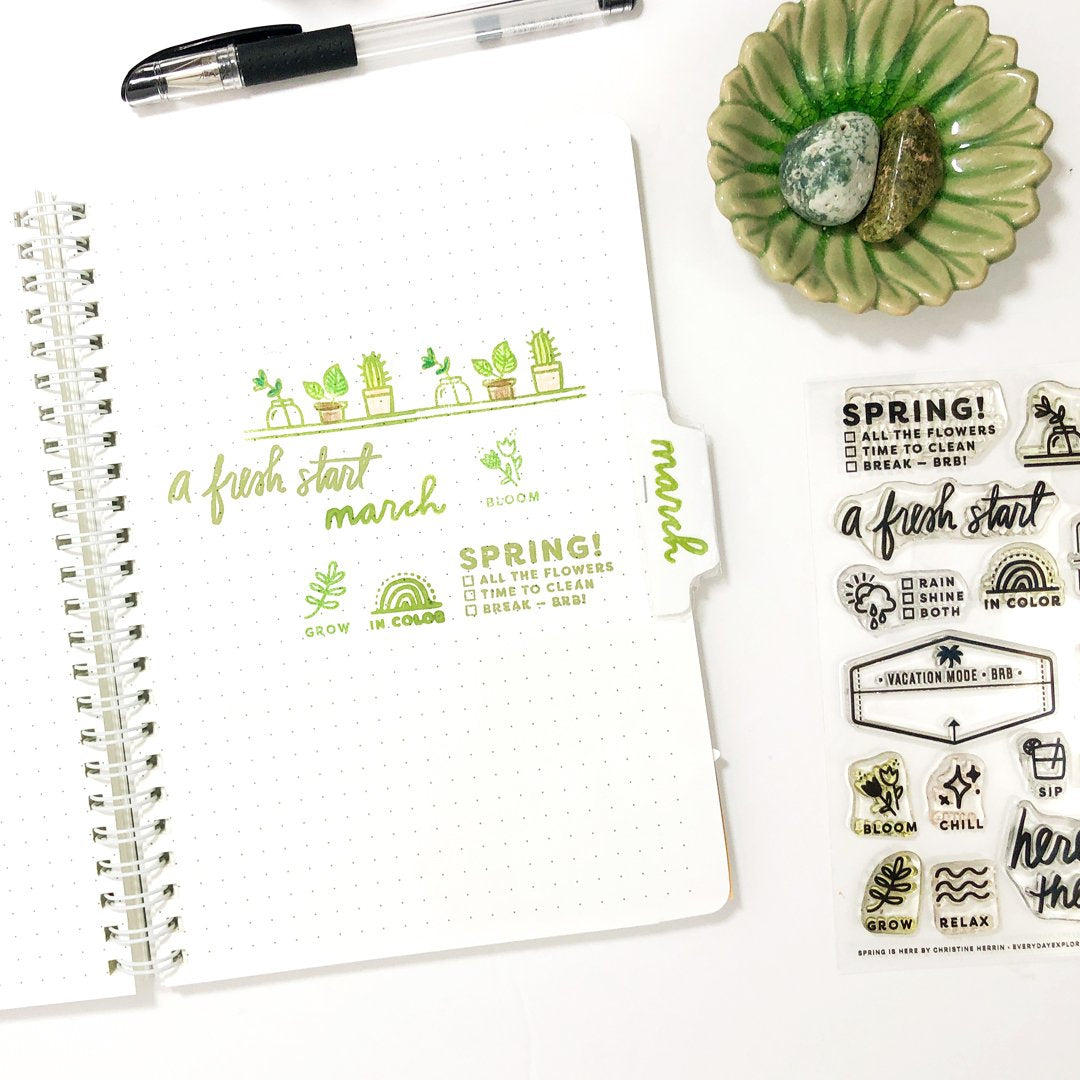 a fresh start
march
BLOOM
GROW
IN COLOR
SPRING!
ALL THE FLOWERS
TIME TO CLEAN
BREAK – BRB!
march
SPRING!
ALL THE FLOWERS
TIME TO CLEAN
BREAK – BRB!
a fresh start
RAIN
SHINE
BOTH
IN COLOR
• VACATION MODE • BRB •
SIP
BLOOM
CHILL
here
the
GROW
RELAX
SPRING IS HERE BY CHRISTINE HERRIN • EVERYDAYEXPLOR